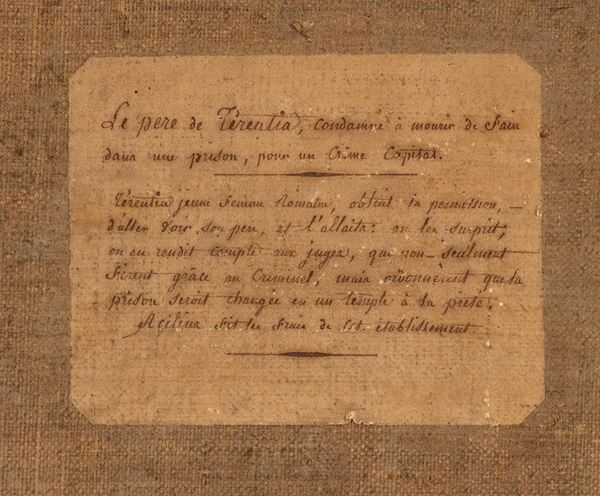 Le pere de Térentia, Condamné à mourir de Faim
dans une prison, pour un Crime Capital.
Térentia jeune Femme Romaine, obtint la permission,
d'aller voir son pere, et l'allaita: on les surprit,
on en rendit compte aux juges, qui non-seulment
Firent grâce au Criminel, mais ordonnèrent que sa
prison seroit changée en un temple à la pieté.
Acilius fit les Frais de cet établissement